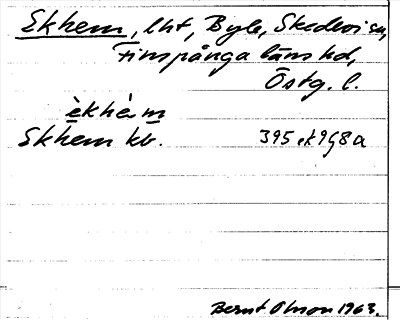 Ekhem, lht, Byle, Skedevi sn,
Finspånga läns hd,
Östg. l.
èkhè m
Ekhem kb. 395 ek 9 g8 a
Bernt Olsson 1963.